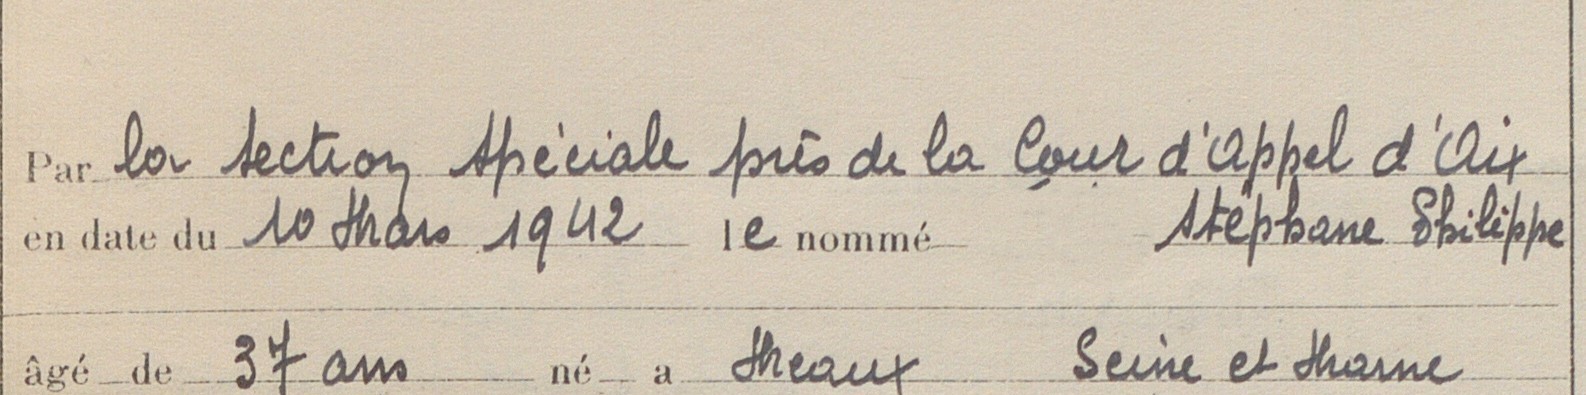 Par la Section Spéciale près de la Cour d'Appel d'Aix
en date du 10 Mars 1942 le nommé Stéphane Philippe
âgé de 37 ans né a Meaux Seine et Marne